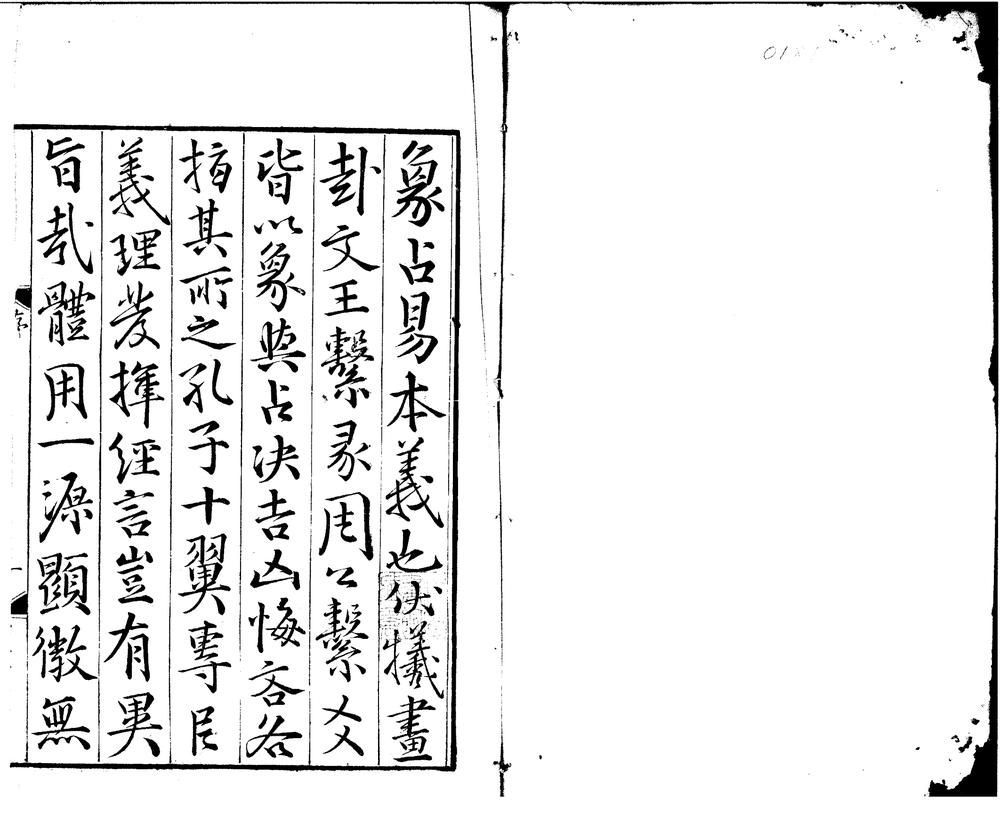 象占易本義也伏犧畫
卦文王繫彖周公繫爻
皆以象與占决吉凶悔吝各
指其所之孔子十翼專㠯
義理發揮經言豈有異
旨哉體用一源顯微無